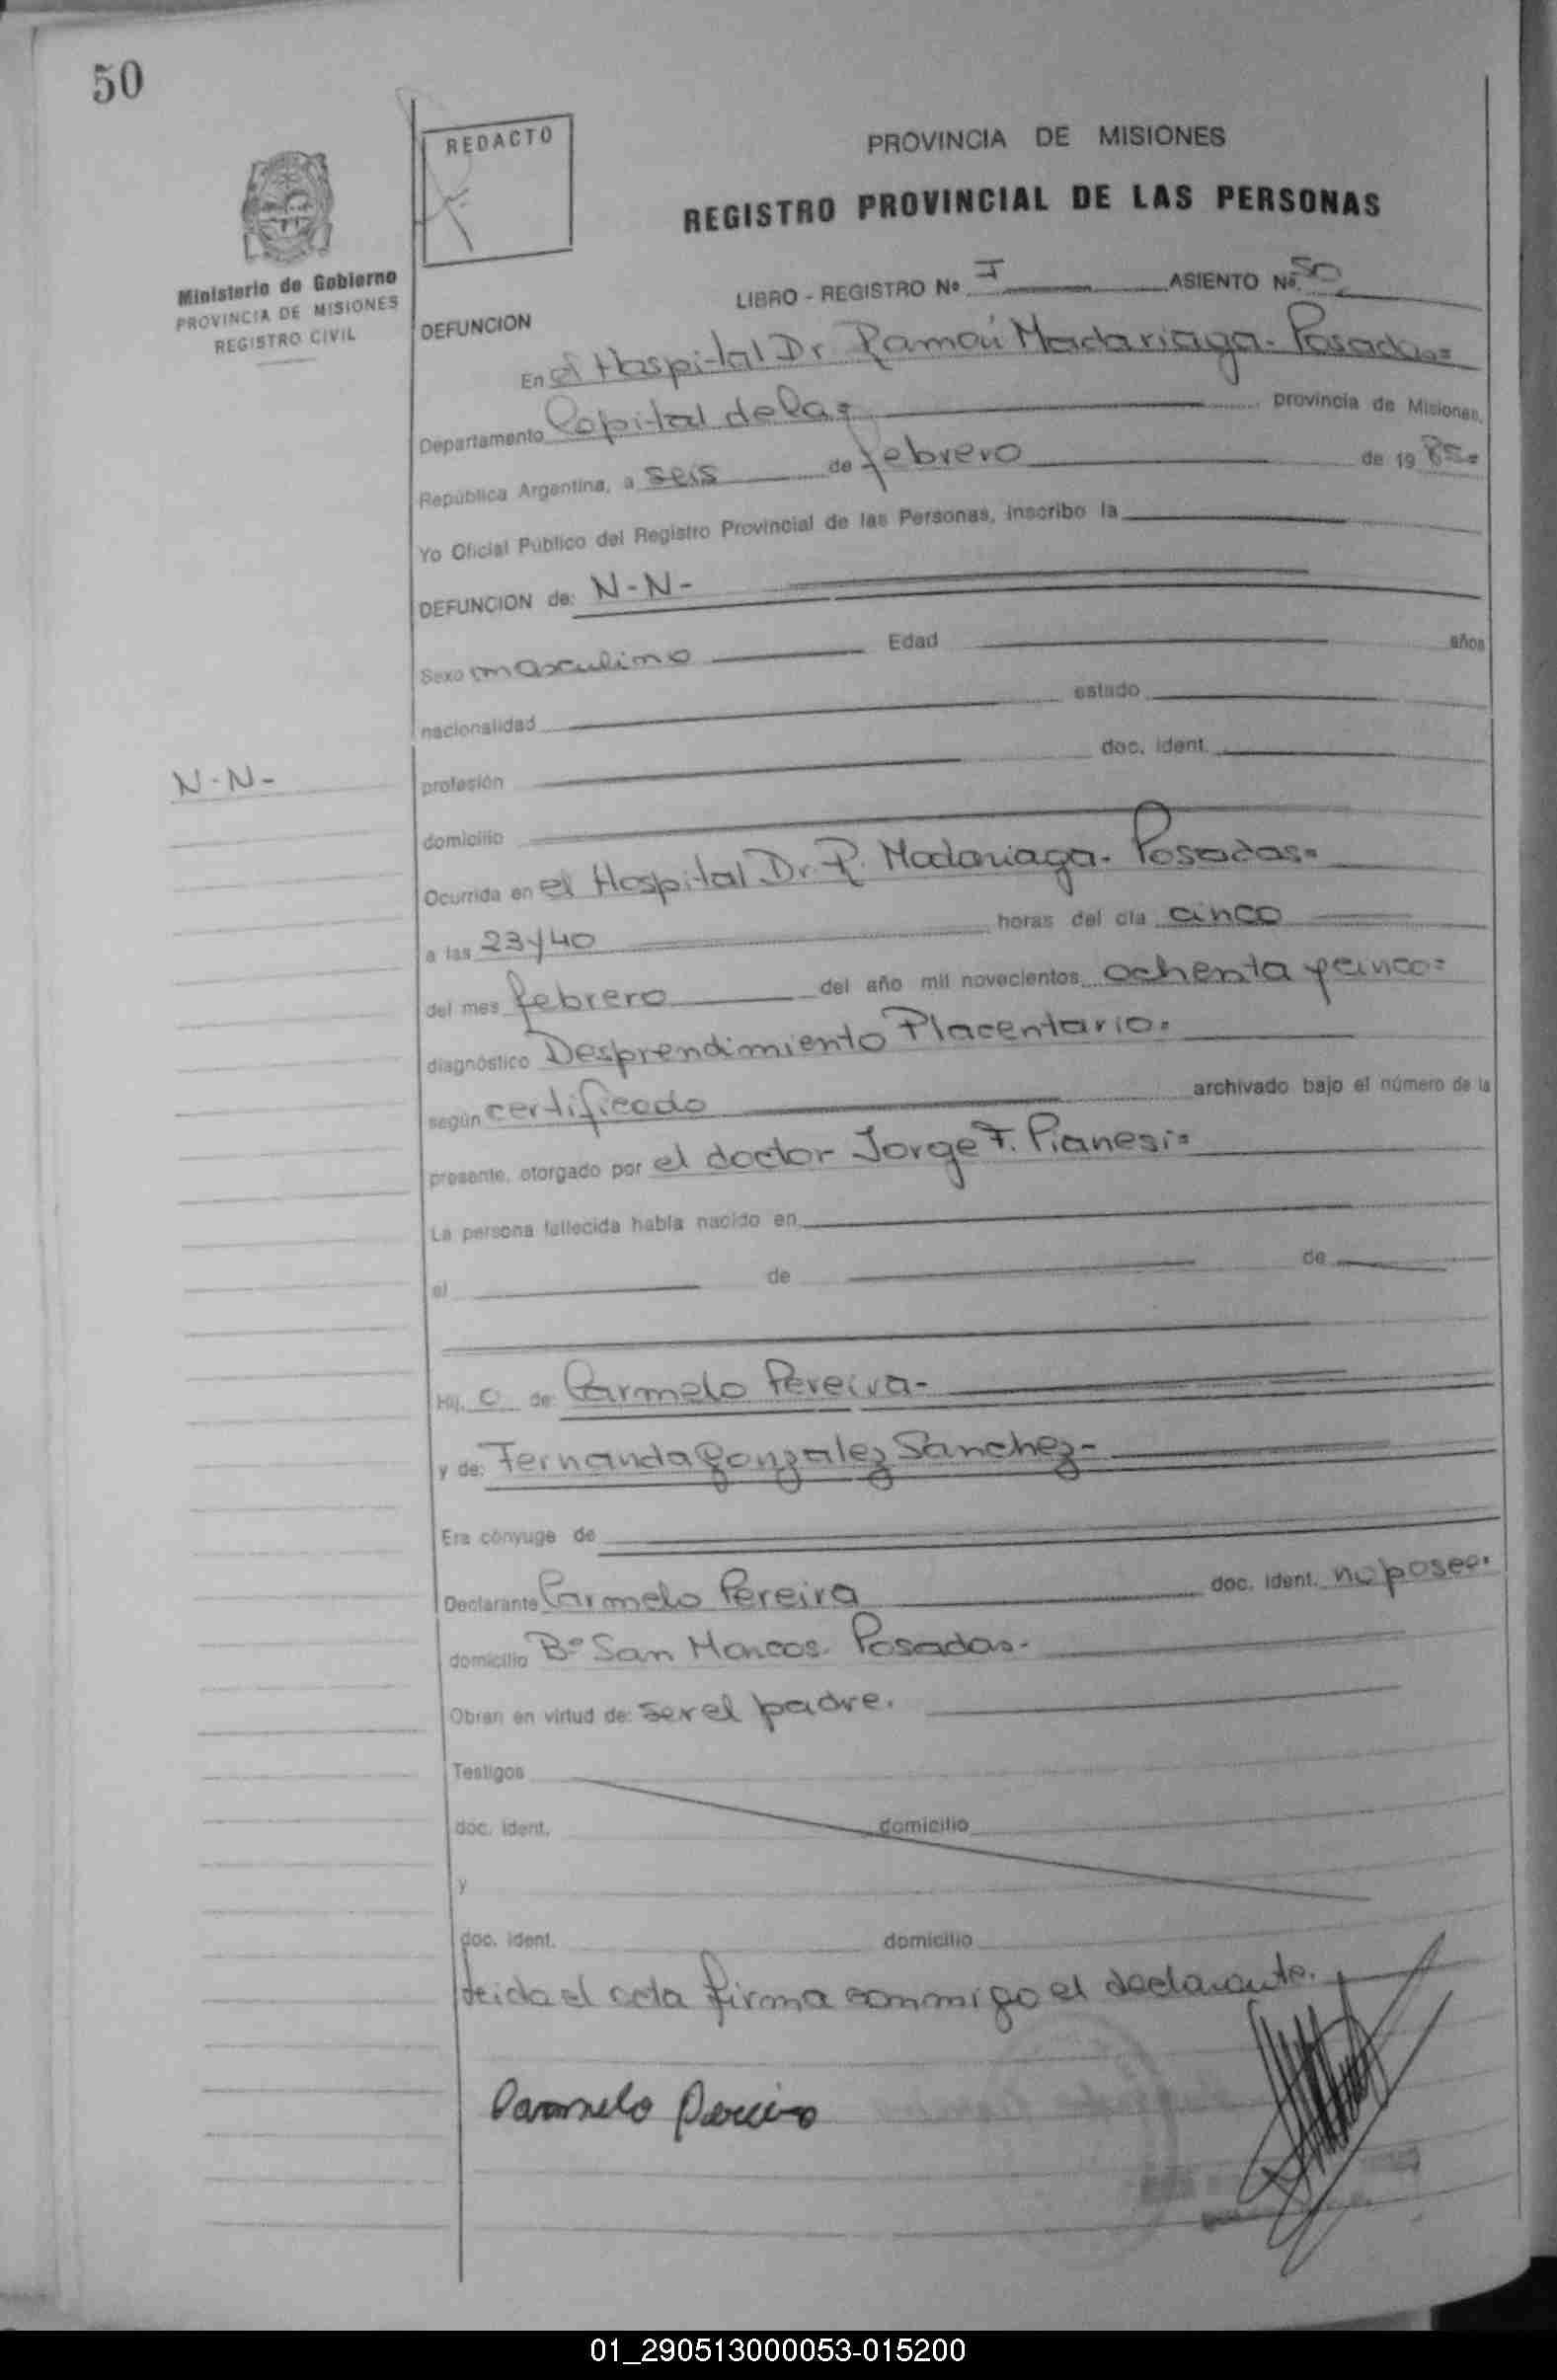 50
REDACTO
PROVINCIA DE MISIONES
REGISTRO PROVINCIAL DE LAS PERSONAS
Ministerio de Gobierno
PROVINCIA DE MISIONES
REGISTRO CIVIL
LIBRO - REGISTRO Nº I ASIENTO Nº 50
DEFUNCION
En el Hospital Dr Ramón Madariaga - Posadas=
Departamento Capital de la= provincia de Misiones,
República Argentina, a seis de febrero de 1985=
Yo Oficial Público del Registro Provincial de las Personas, inscribo la
DEFUNCION de: N-N-
Sexo masculino Edad años
nacionalidad estado
N-N-
profesión doc. ident.
domicilio
Ocurrida en el Hospital Dr. R. Madariaga - Posadas=
a las 23y40 horas del día cinco
del mes febrero del año mil novecientos ochenta y cinco=
diagnóstico Desprendimiento Placentario=
según certificado archivado bajo el número de la
presente, otorgado por el doctor Jorge F. Pianesi=
La persona fallecida había nacido en
el de de
Hij o de: Carmelo Pereira-
y de: Fernanda Gonzalez Sanchez-
Era cónyuge de
Declarante Carmelo Pereira doc. ident. no posee.
domicilio Bº San Marcos. Posadas-
Obran en virtud de: ser el padre.
Testigos
doc. ident. domicilio
y
doc. ident. domicilio
Leida el acta firma conmigo el declarante.
Carmelo Pereira
01_290513000053-015200